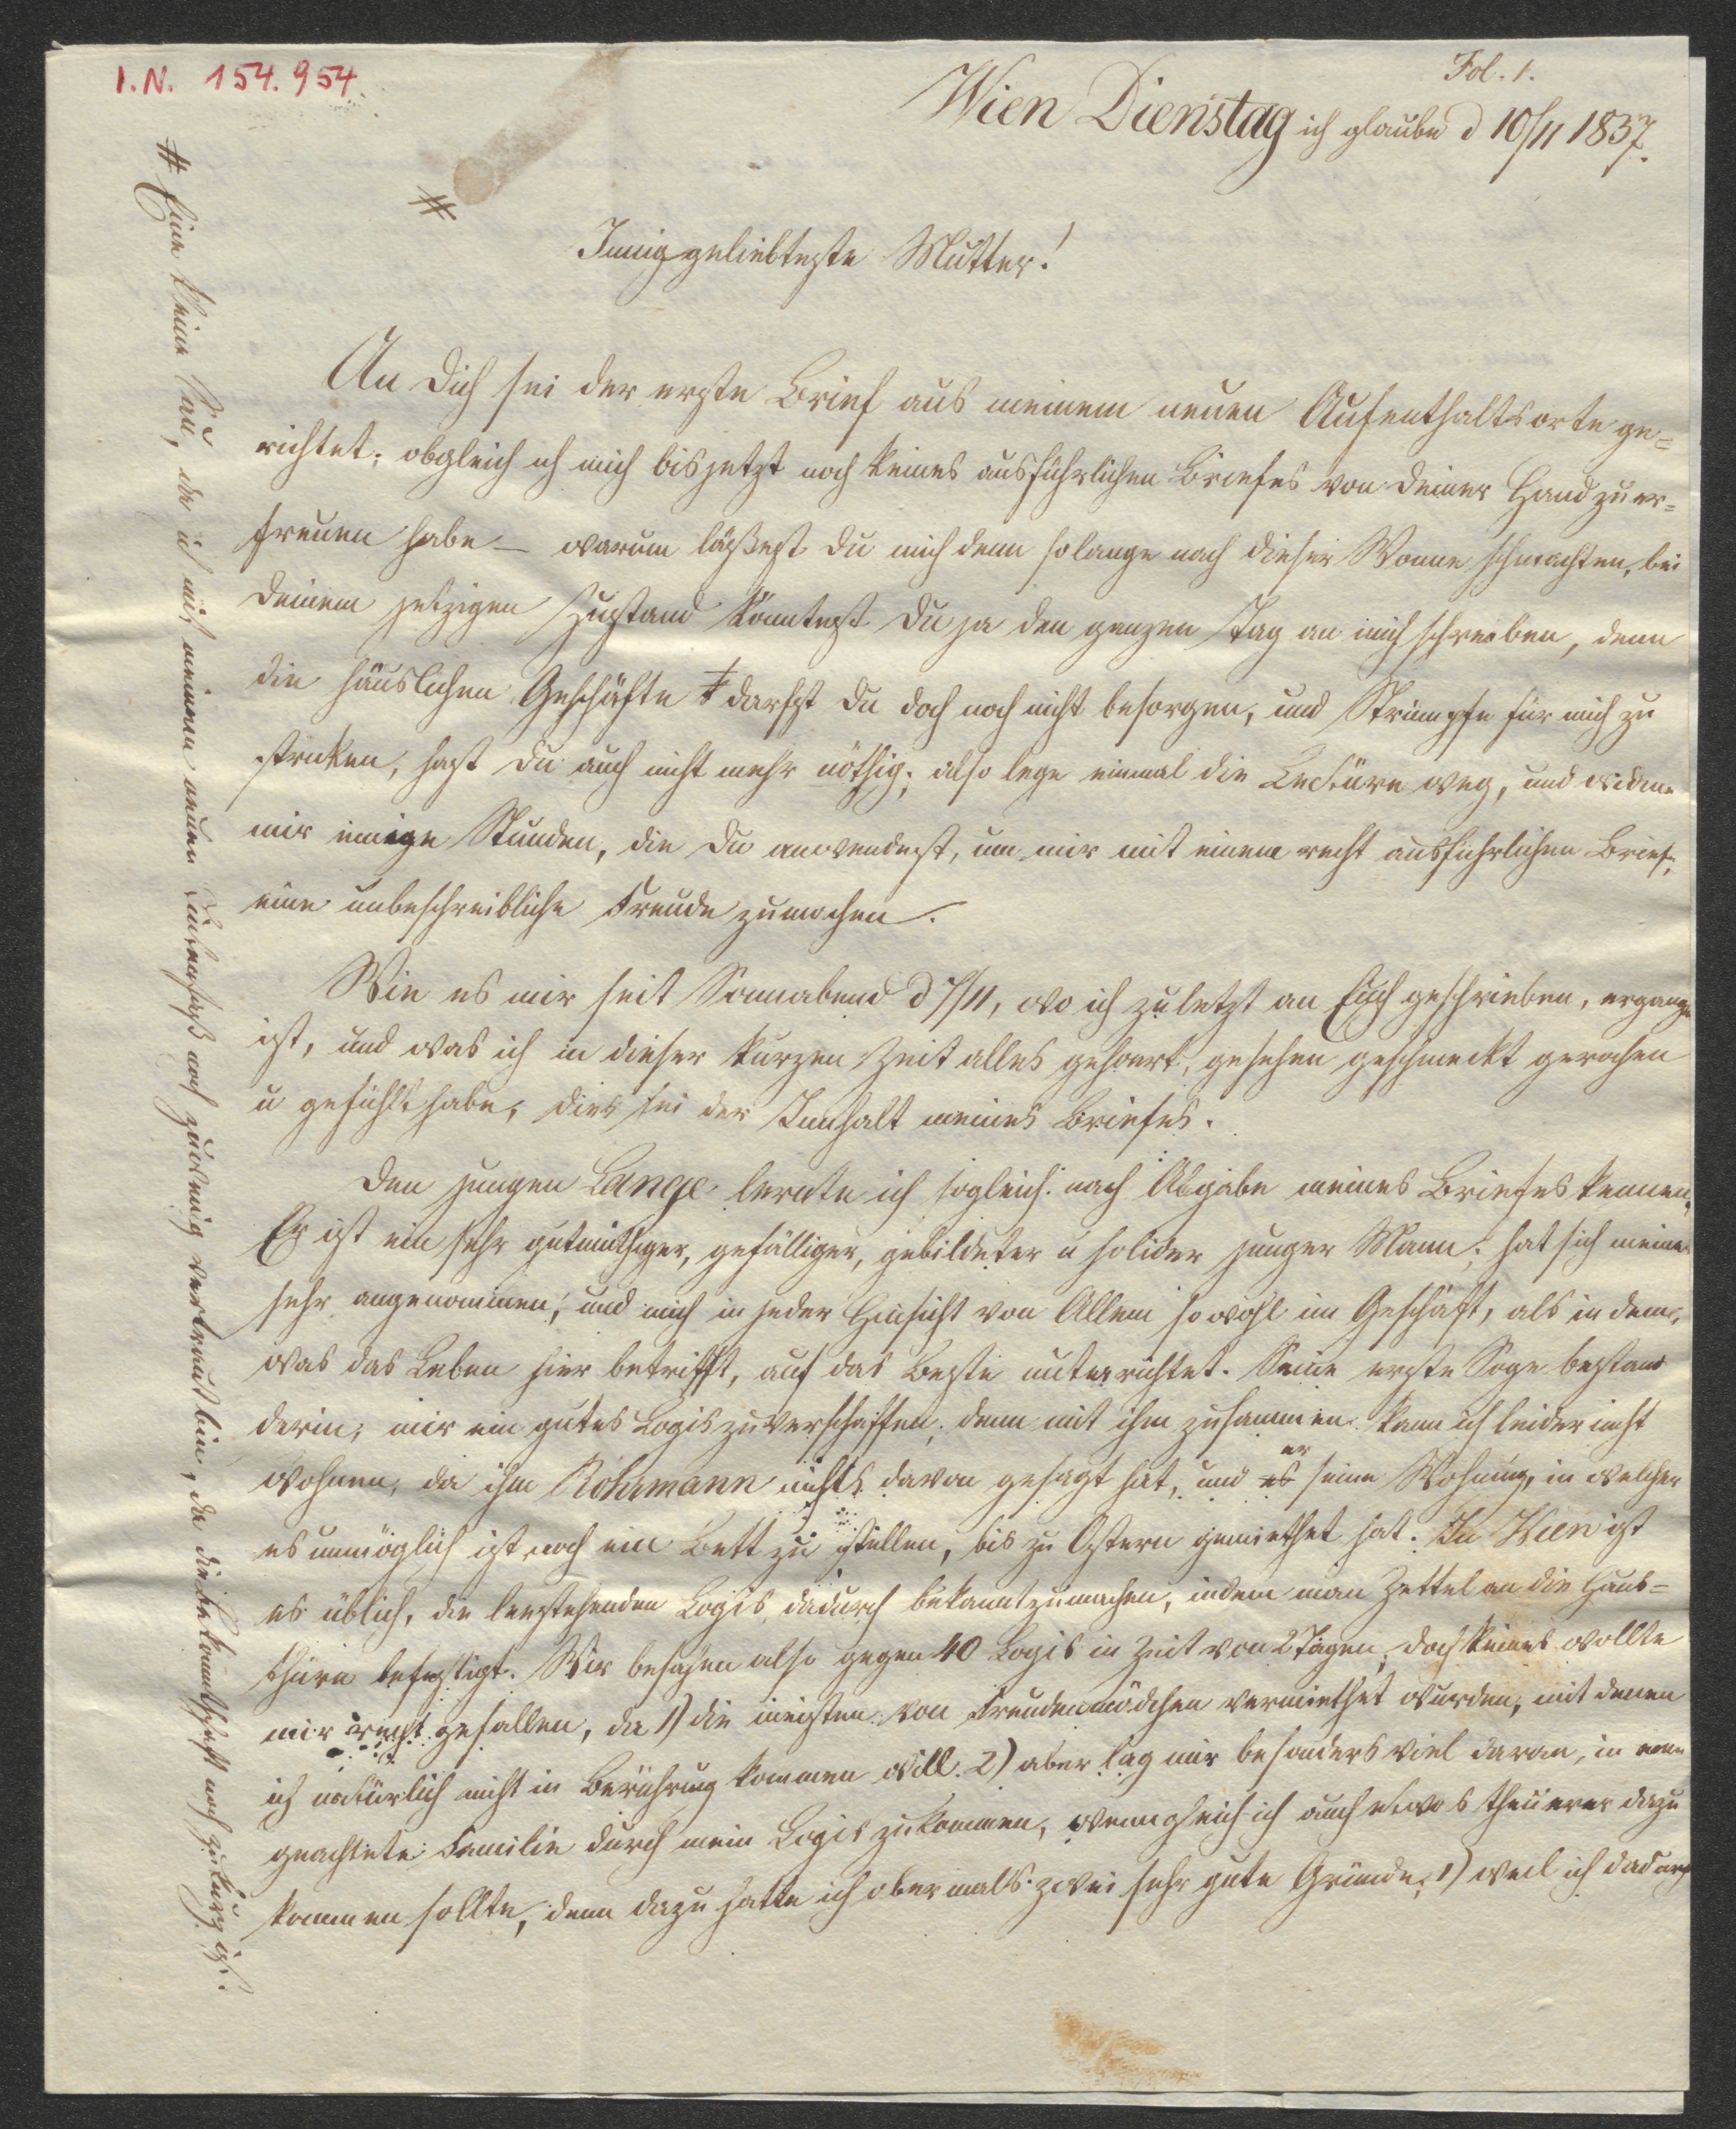 I.N. 154.954.
Fol. 1.
Wien Dienstag ich glaube d 10/11 1837.
#
Innig geliebteste Mutter!
An Dich sei der erste Brief aus meinem neuen Aufenthaltsorte ge=
richtet; obgleich ich mich bis jetzt noch keines ausführlichen Briefes von Deiner Hand zu er=
freuen habe — warum läßest Du mich denn so lange nach dieser Wonne schmachten, bei
Deinem jetzigen Zustand könntest Du ja den ganzen Tag an mich schreiben, denn
die häuslichen Geschäfte darfst Du doch noch nicht besorgen, und Strümpfe für mich zu
stricken, hast Du auch nicht mehr nöthig; also lege einmal die Lectüre weg, und widme
mir einige Stunden, die Du anwendest, um mir mit einem recht ausführlichen Brief,
eine unbeschreibliche Freude zu machen.
Wie es mir seit Sonnabend d 7/11, wo ich zuletzt an Euch geschrieben, ergangen
ist, und was ich in dieser kurzen Zeit alles gehoert, gesehen geschmeckt gerochen
u gefühlt habe, dies sei der Innhalt meines Briefes.
Den jungen Lange lernte ich sogleich nach Abgabe meines Briefes kennen,
Er ist ein sehr gutmüthiger, gefälliger, gebildeter u solider junger Mann; hat sich meiner
sehr angenommen; und mich in jeder Hinsicht von Allem sowohl im Geschäft, als in dem,
was das Leben hier betrifft, auf das Beste unterrichtet. Seine erste Soge bestand
darin, mir ein gutes Logis zu verschaffen; denn mit ihm zusammen kann ich leider nicht
wohnen, da ihm Rohrmann nichts davon gesagt hat, und es er seine Wohnung, in welcher
es unmöglich ist noch ein Bett zu stellen, bis zu Ostern gemiethet hat. In Wien ist
es üblich, die leerstehenden Logis dadurch bekannt zu machen, indem man Zettel an die Haus=
thüre befestigt. Wir besahen also gegen 40 Logis in Zeit von 2 Tagen; doch keines wollte
mir recht gefallen, da 1) die meisten von Freudenmädchen vermiethet wurden, mit denen
ich natürlich nicht in Berührung kommen will. 2) aber lag mir besonders viel daran, in eine
geachtete Familie durch mein Logis zu kommen, wenngleich ich auch etwas theuerer dazu
kommen sollte, denn dazu hatte ich abermals zwei sehr gute Gründe; 1) weil ich dadurch
# Eine kleine da ich mit meinem neuen noch zu wenig vertraut bin, da die Bekanntschaft noch zu kurz ist.